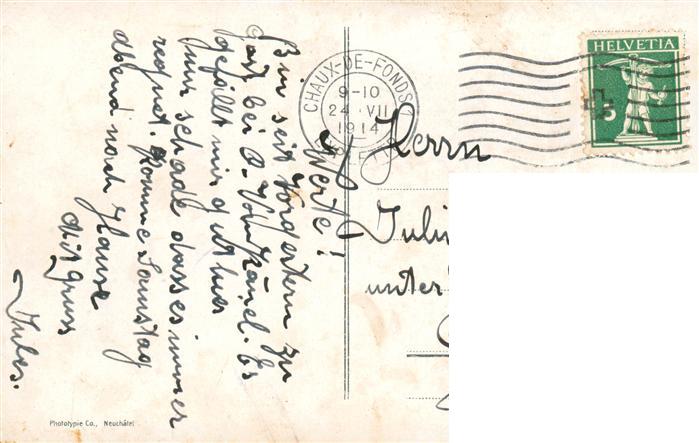 Werte!
Bin seit Vorgestern zu
Gast bei O. Es
gefällt mir gut hier
nur schade dass es immer
regnet. Komme Samstag
abend nach Hause
Mit Gruss
Jules.
CHAUX-DE-FONDS 1
9-10
24.VII
1914
HELVETIA
5
Herrn
unter
Phototypie Co., Neuchâtel